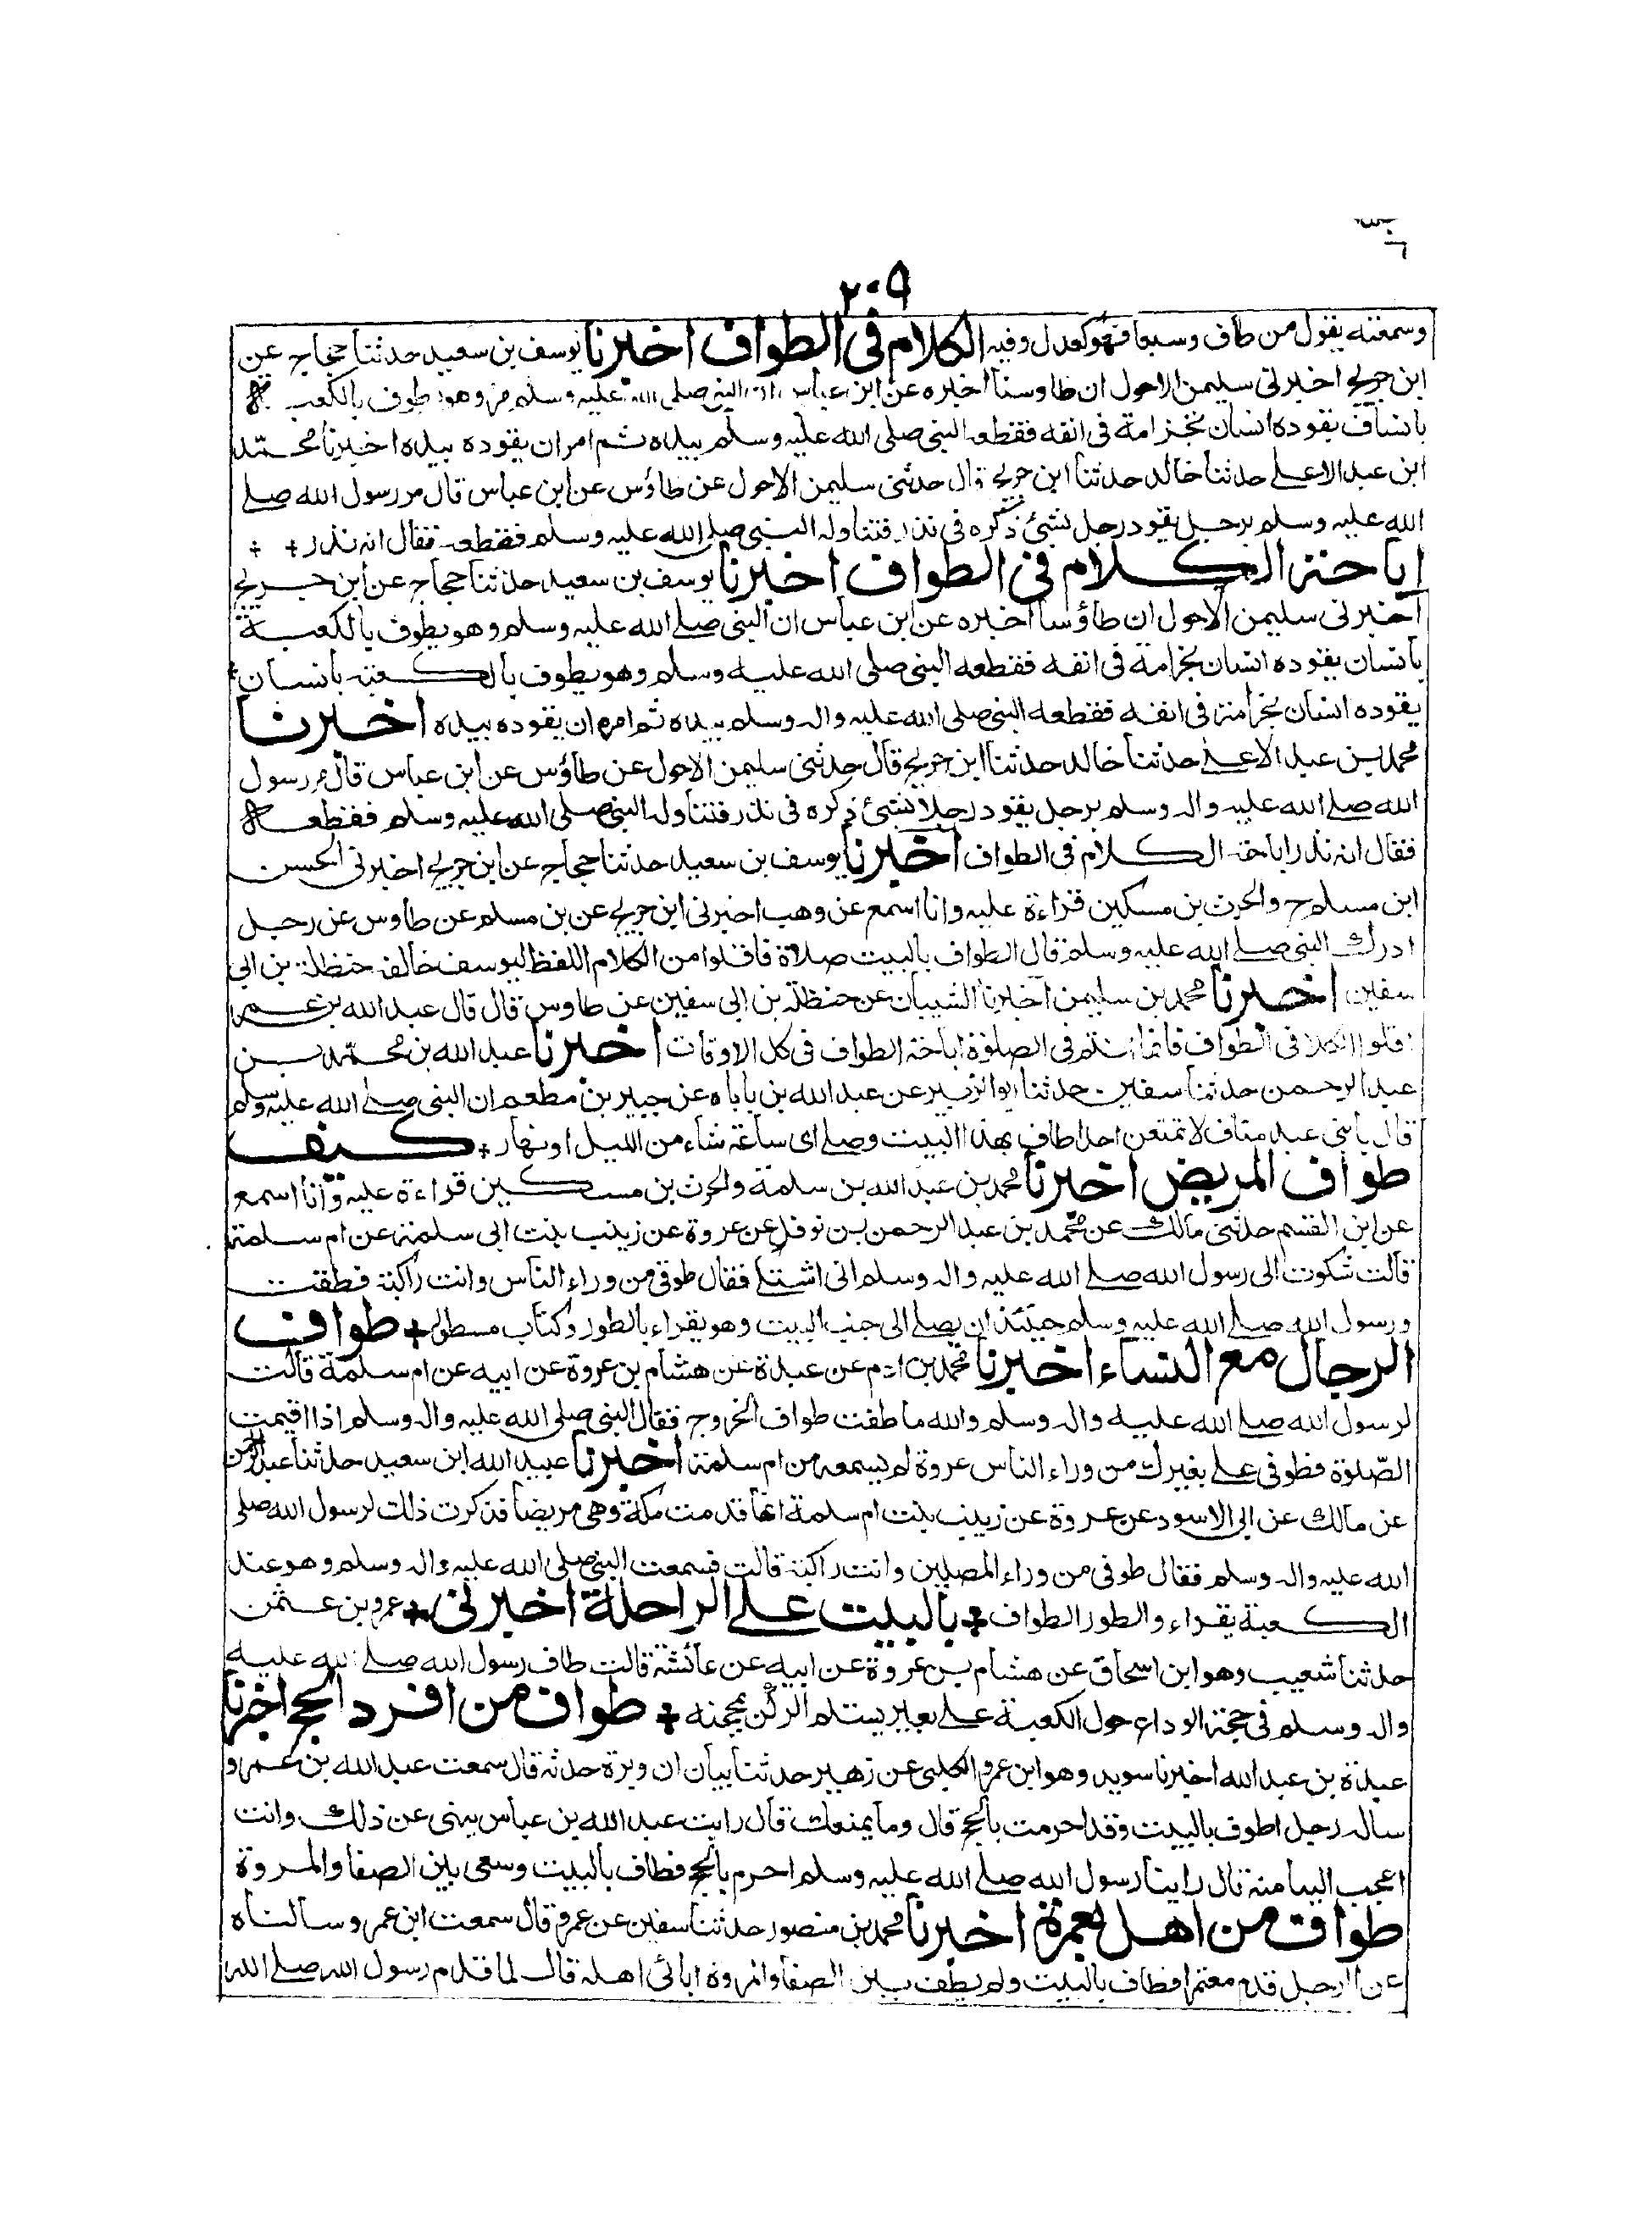 ٢٠٩
وسمعته يقول من طاف وسبعا فهو كعدل وفيه الكلام في الطواف اخبرنا يوسف بن سعيد حدثنا حجاج عن
ابن جريج اخبرني سليمن الاحول ان طاوسا اخبره عن ابن عباس ان النبي صلى الله عليه وسلم مر وهو يطوف بالكعبة
بانسان يقوده انسان بخزامة في انفه فقطعه النبي صلى الله عليه وسلم بيده ثم امر ان يقوده بيده اخبرنا محمد
ابن عبد الاعلى حدثنا خالد حدثنا ابن جريج قال حدثني سليمن الاحول عن طاؤس عن ابن عباس قال مر رسول الله صلى
الله عليه وسلم برجل يقود رجل بشئ ذكره في نذر فتناوله النبي صلى الله عليه وسلم فقطعه فقال انه نذر
اباحة الكلام في الطواف اخبرنا يوسف بن سعيد حدثنا حجاج عن ابن جريج
اخبرني سليمن الاحول ان طاؤسا اخبره عن ابن عباس ان النبي صلى الله عليه وسلم وهو يطوف بالكعبة
بانسان يقوده انسان بخزامة في انفه فقطعه النبي صلى الله عليه وسلم وهو يطوف بالكعبة بانسان
يقوده انسان بخزامة في انفه فقطعه النبي صلى الله عليه واله وسلم بيده ثم امره ان يقوده بيده اخبرنا
محمد بن عبد الاعلى حدثنا خالد حدثنا ابن جريج قال حدثني سليمن الاحول عن طاؤس عن ابن عباس قال مر رسول
الله صلى الله عليه واله وسلم برجل يقود رجلا بشئ ذكره في نذر فتناوله النبي صلى الله عليه وسلم فقطعه
فقال انه نذر اباحة الكلام في الطواف اخبرنا يوسف بن سعيد حدثنا حجاج عن ابن جريج اخبرني الحسن
ابن مسلم ح والحرث بن مسكين قراءة عليه وانا اسمع عن وهب اخبرني ابن جريج عن بن مسلم عن طاوس عن رجل
ادرك النبي صلى الله عليه وسلم قال الطواف بالبيت صلاة فاقلوا من الكلام اللفظ ليوسف خالفه حنظلة بن ابي
سفين اخبرنا محمد بن سليمن اخبرنا الشيبان عن حنظلة بن ابي سفين عن طاوس قال قال عبد الله بن عمر
اقلوا الكلا في الطواف فانما انتم في الصلوة اباحة الطواف في كل الاوقات اخبرنا عبد الله بن محمد بن
عبد الرحمن حدثنا سفين حدثنا ابو الزبير عن عبد الله بن باباه عن جبير بن مطعم ان النبي صلى الله عليه وسلم
قال يا بني عبد مناف لا تمتعن احدا طاف بهذا البيت وصلى اى ساعة شاء من الليل او نهار كيف
طواف المريض اخبرنا محمد بن عبد الله بن سلمة والحرث بن مسكين قراءة عليه وانا اسمع
عن ابن القسم حدثني مالك عن محمد بن عبد الرحمن بن نوفل عن عروة عن زينب بنت ابي سلمة عن ام سلمة
قالت شكوت الى رسول الله صلى الله عليه واله وسلم اني اشتكى فقال طوفي من وراء الناس وانت راكبة فطفت
ورسول الله صلى الله عليه وسلم حينئذ ان يصلى الى جنب البيت وهو يقراء بالطور وكتاب مسطور طواف
الرجال مع النساء اخبرنا محمد بن ادم عن عبدة عن هشام بن عروة عن ابيه عن ام سلمة قالت
لرسول الله صلى الله عليه واله وسلم والله ما طفت طواف الخروج فقال النبي صلى الله عليه واله وسلم اذا اقيمت
الصلوة فطوفي على بغيرك من وراء الناس عروة لم يسمعه من ام سلمة اخبرنا عبيد الله ابن سعيد حدثنا عبد الرحمن
عن مالك عن ابي الاسود عن عروة عن زينب بنت ام سلمة انها قدمت مكة وهي مريضا فذكرت ذلك لرسول الله صلى
الله عليه واله وسلم فقال طوفي من وراء المصلين وانت راكبة قالت فسمعت النبي صلى الله عليه واله وسلم وهو عند
الكعبة يقراء والطور الطواف بالبيت على الراحلة اخبرني عمرو بن عثمن
حدثنا شعيب وهو ابن اسحاق عن هشام بن عروة عن ابيه عن عائشة قالت طاف رسول الله صلى الله عليه
واله وسلم في حجة الوداع حول الكعبة على بعير يستلم الركن بمحجنه طواف من افرد الحج اخبرنا
عبدة بن عبد الله اخبرنا سويد وهو ابن عمرو الكلبي عن زهير حدثنا بيان ان وبرة حدثه قال سمعت عبد الله بن عمر و
ساله رجل اطوف بالبيت وقد احرمت بالحج قال وما يمنعك قال رايت عبد الله بن عباس ينهى عن ذلك وانت
اعجب الينا منه قال راينا رسول الله صلى الله عليه وسلم احرم بالحج فطاف بالبيت وسعى بين الصفا والمروة
طواف من اهل بعمرة اخبرنا محمد بن منصور حدثنا سفين عن عمرو قال سمعت ابن عمر وسالناه
عن الرجل قدم معتمرا فطاف بالبيت ولم يطف بين الصفا والمروة اياتى اهله قال لما قدم رسول الله صلى الله